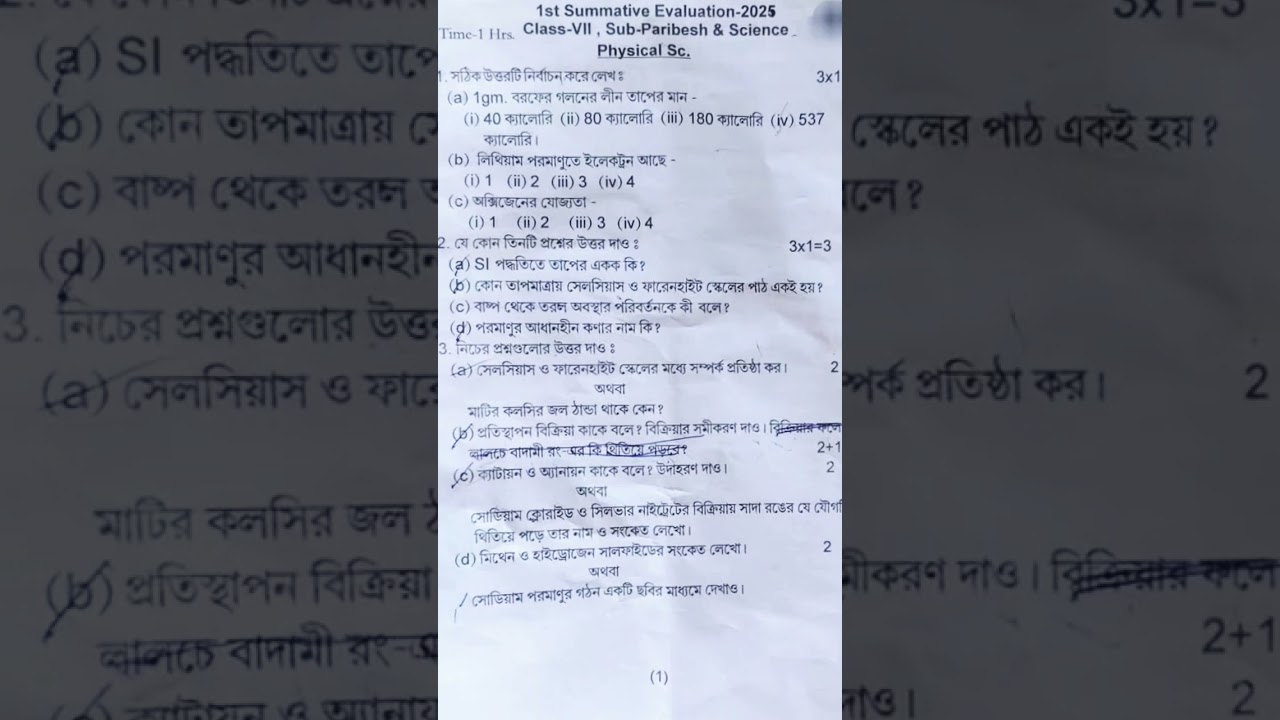 1st Summative Evaluation-2025
Time-1 Hrs. Class-VII , Sub-Paribesh & Science
Physical Sc.
1. সঠিক উত্তরটি নির্বাচন করে লেখ ঃ 3x1
(a) 1gm. বরফের গলনের লীন তাপের মান -
(i) 40 ক্যালোরি (ii) 80 ক্যালোরি (iii) 180 ক্যালোরি (iv) 537
ক্যালোরি।
(b) লিথিয়াম পরমাণুতে ইলেকট্রন আছে -
(i) 1 (ii) 2 (iii) 3 (iv) 4
(c) অক্সিজেনের যোজ্যতা -
(i) 1 (ii) 2 (iii) 3 (iv) 4
2. যে কোন তিনটি প্রশ্নের উত্তর দাও ঃ 3x1=3
(a) SI পদ্ধতিতে তাপের একক কি?
(b) কোন তাপমাত্রায় সেলসিয়াস ও ফারেনহাইট স্কেলের পাঠ একই হয়?
(c) বাষ্প থেকে তরল অবস্থার পরিবর্তনকে কী বলে?
(d) পরমাণুর আধানহীন কণার নাম কি?
3. নিচের প্রশ্নগুলোর উত্তর দাও ঃ
(a) সেলসিয়াস ও ফারেনহাইট স্কেলের মধ্যে সম্পর্ক প্রতিষ্ঠা কর। 2
অথবা
মাটির কলসির জল ঠান্ডা থাকে কেন?
(b) প্রতিস্থাপন বিক্রিয়া কাকে বলে? বিক্রিয়ার সমীকরণ দাও। বিক্রিয়ার ফলে
লালচে বাদামী রং-এর কি থিতিয়ে পড়বে? 2+1
(c) ক্যাটায়ন ও অ্যানায়ন কাকে বলে? উদাহরণ দাও। 2
অথবা
সোডিয়াম ক্লোরাইড ও সিলভার নাইট্রেটের বিক্রিয়ায় সাদা রঙের যে যৌগ
থিতিয়ে পড়ে তার নাম ও সংকেত লেখো।
(d) মিথেন ও হাইড্রোজেন সালফাইডের সংকেত লেখো। 2
অথবা
সোডিয়াম পরমাণুর গঠন একটি ছবির মাধ্যমে দেখাও।
(1)